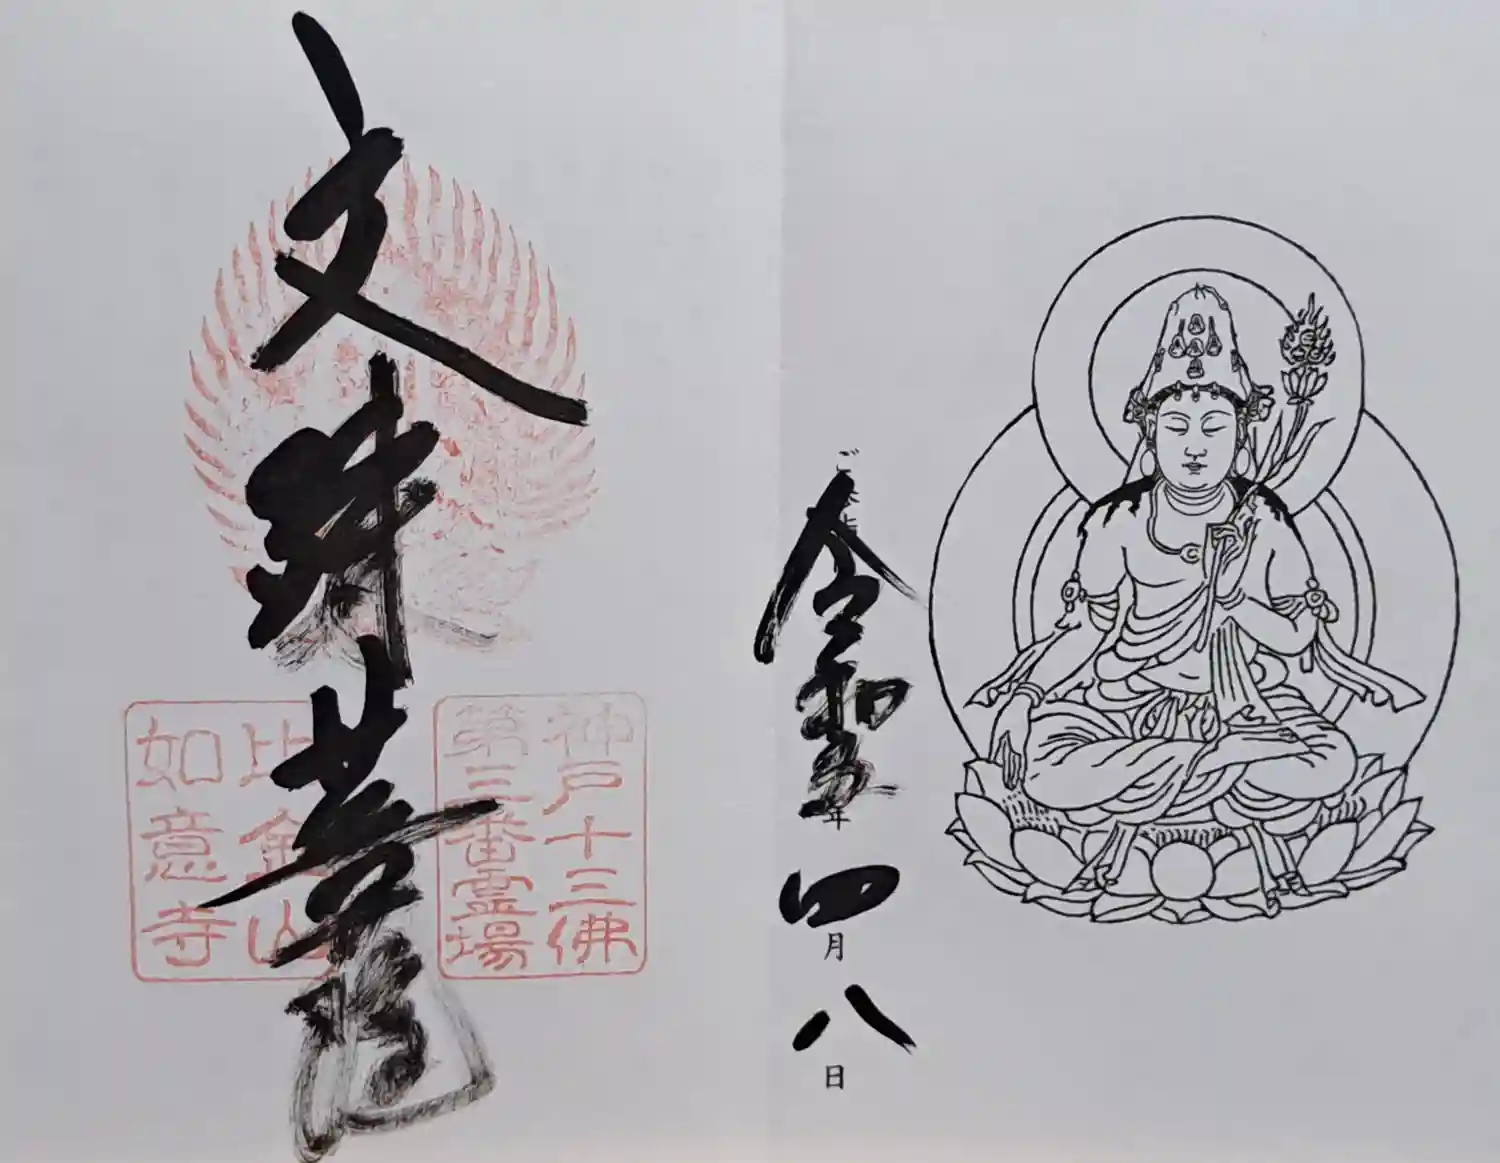 令和五年四月八日
神戸十三佛
第三番霊場
文殊菩薩
比金山
如意寺